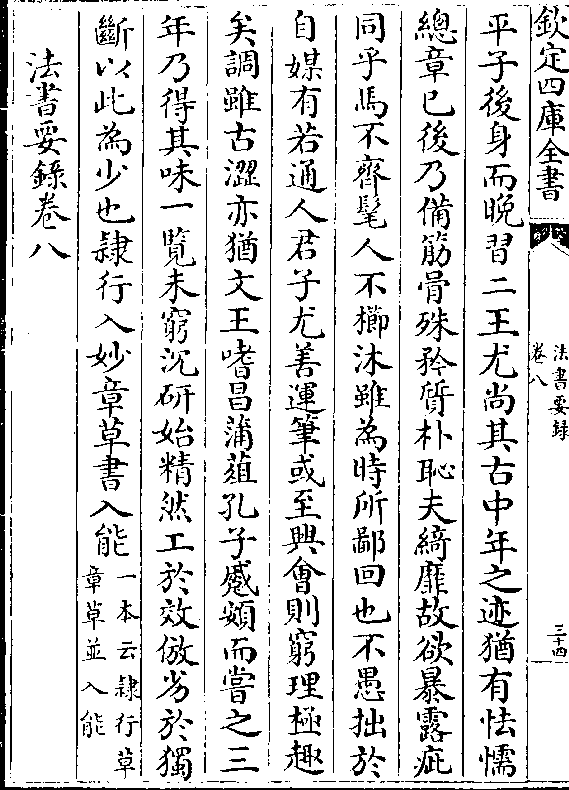 欽定四庫全書
法書要録
卷八
三十四
平子後身而晚習二王尤尚其古中年之迹猶有怯懦
總章已後乃備筋骨殊矜質朴恥夫綺靡故欲暴露疵
同乎馬不齊髦人不櫛沐雖為時所鄙回也不愚拙於
自媒有若通人君子尤善運筆或至興會則窮理極趣
矣調雖古澀亦猶文王嗜昌蒲葅孔子蹙頞而嘗之三
年乃得其味一覧未窮沉研始精然工於效倣劣於獨
斷以此為少也隸行入妙章草書入能
一本云隸行草
章草並入能
法書要錄卷八